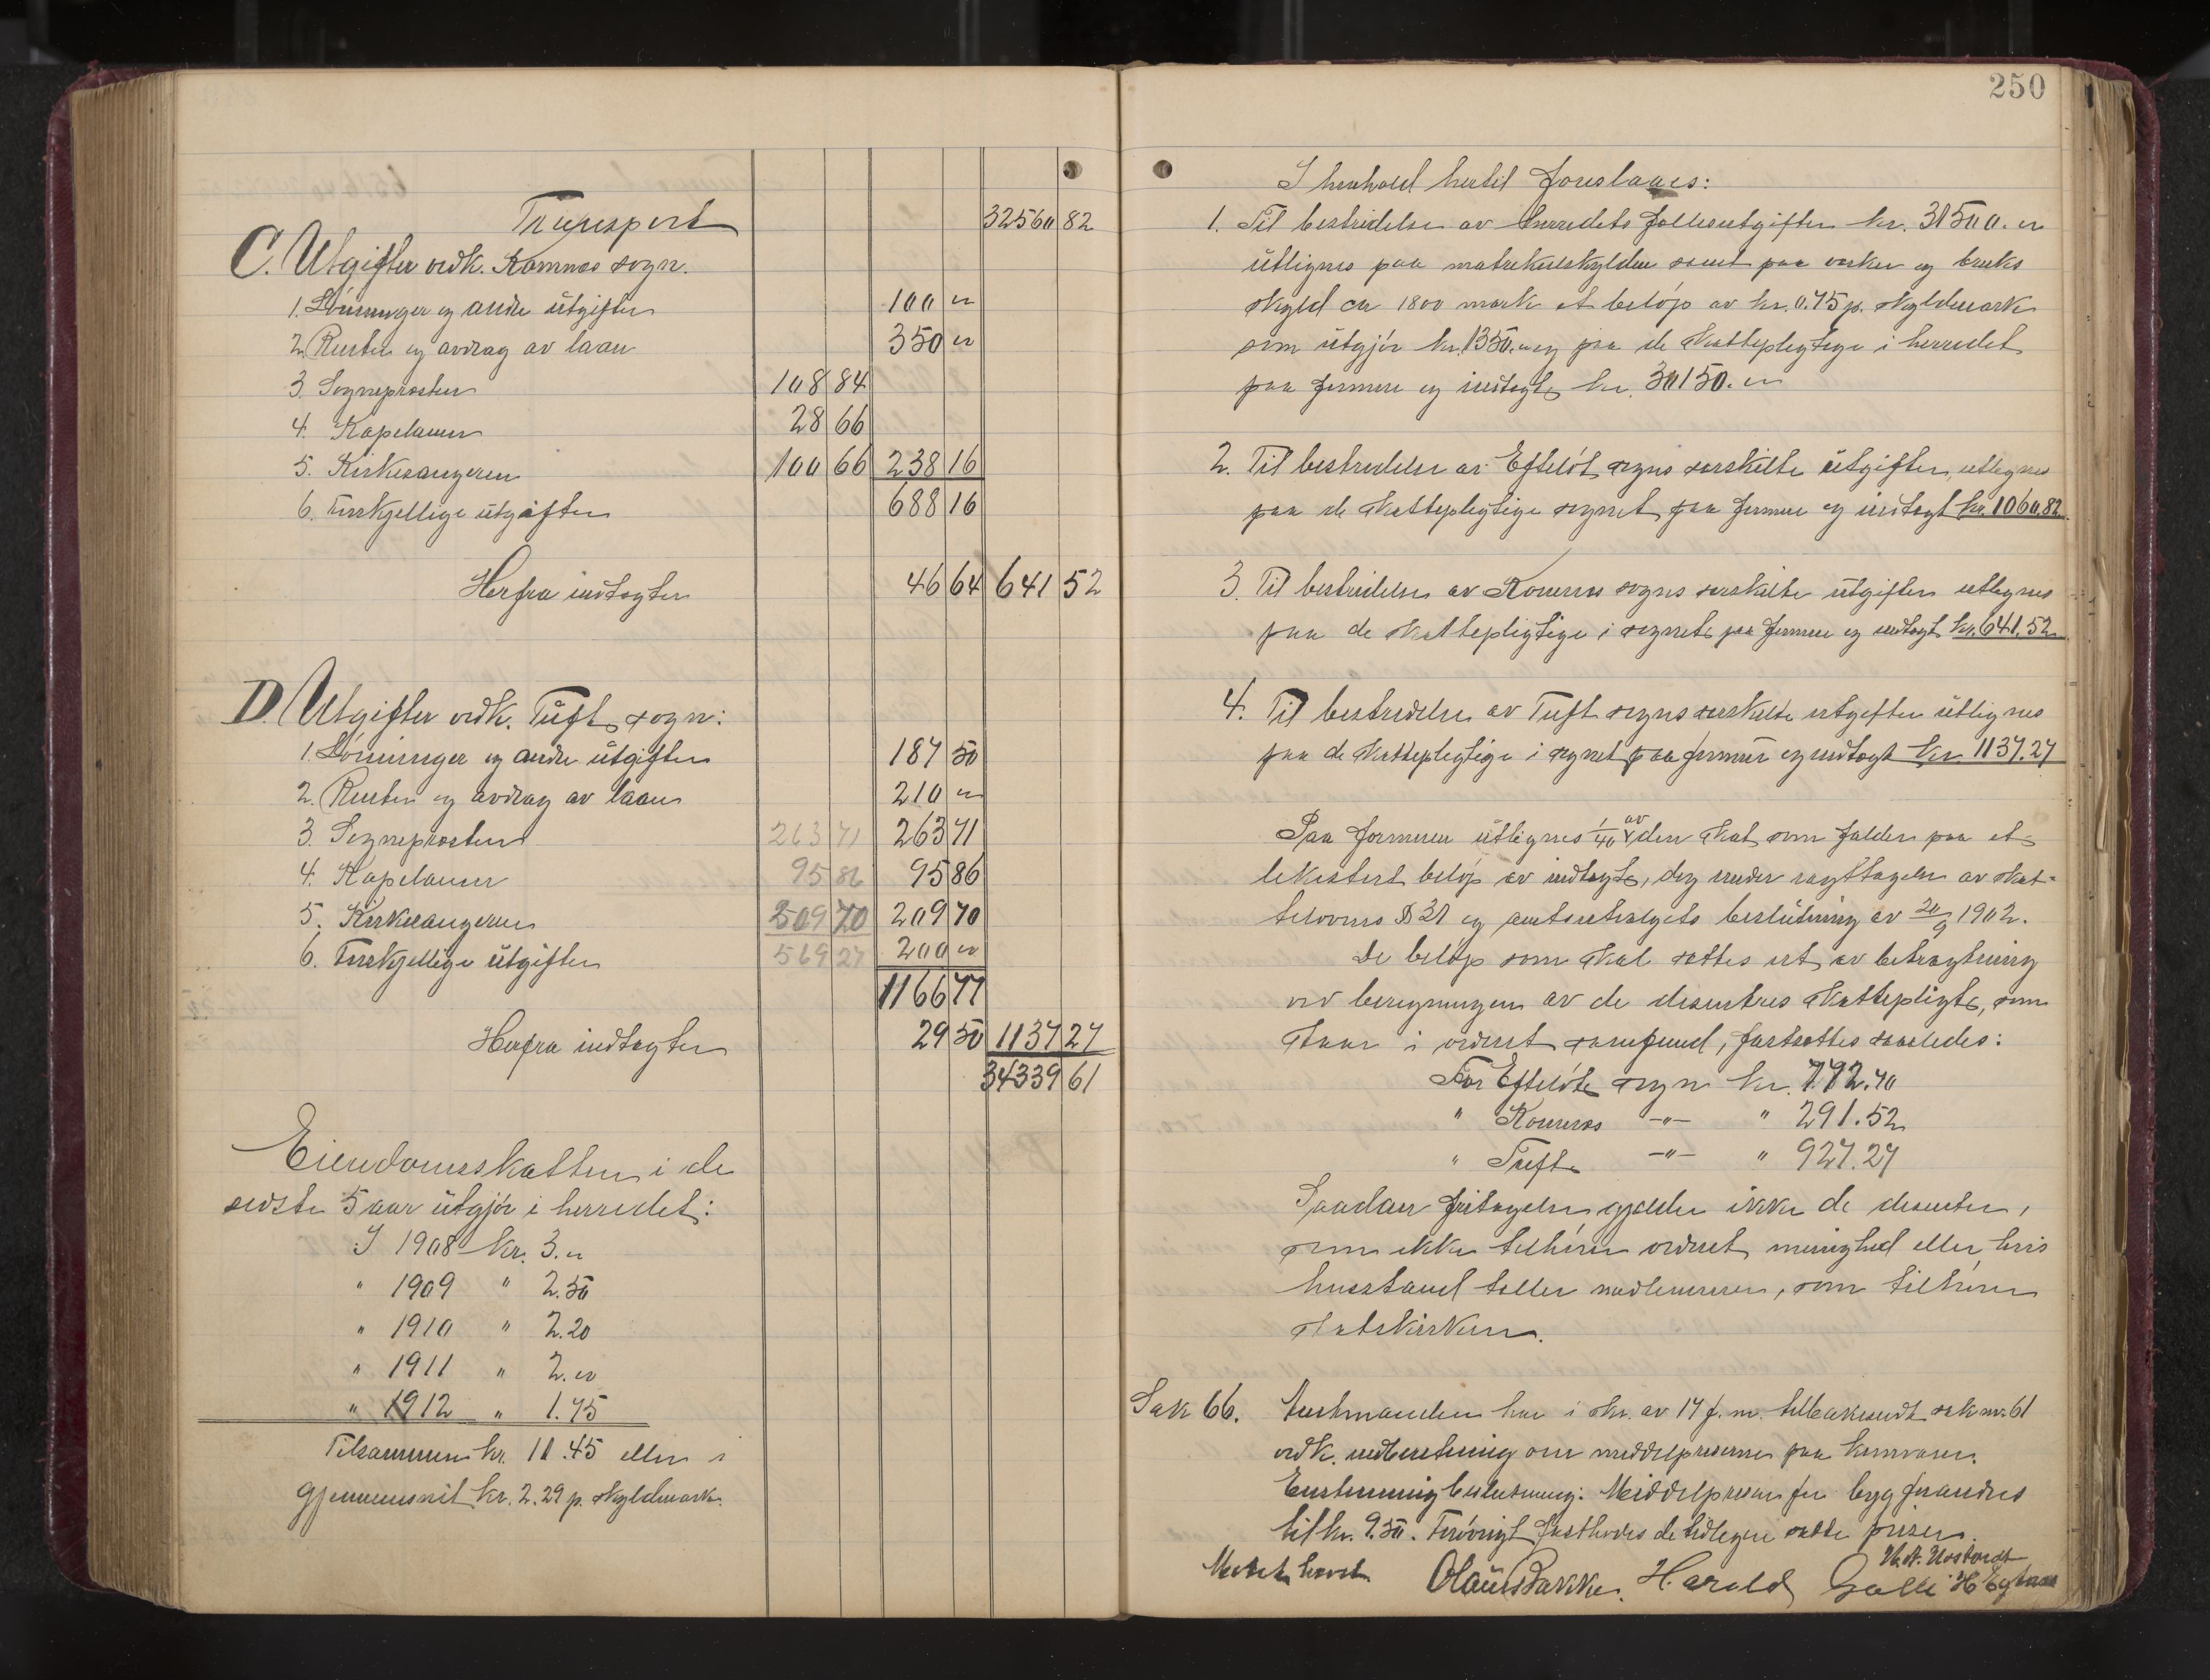 Transport 32560 82
C. Utgifter vedk. Komnes sogn.
1. Lönninger og andre utgifter 100 "
2. Renter og avdrag av laan 350 "
3. Sogneprosten 108 84
4. Kapelanen 28 66
5. Kirkesangeren 100 66 238 16
6. Forskjellige utgifter 688 16
Herfra indtægter 46 64 641 52
D. Utgifter vedk. Tuft sogn:
1. Lönninger og andre utgifter 187 50
2. Renter og avdrag av laan 210 "
3. Sogneprosten 263 71 263 71
4. Kapelanen 95 86 95 86
5. Kirkesangeren 209 70 209 70
6. Forskjellige utgifter 569 27 200 "
1166 77
Herfra indtægter 29 50 1137 27
34339 61
Eiendomsskatten i de
sidste 5 aar utgjör i herredet:
I 1908 kr. 3.„
" 1909 " 2.50
" 1910 " 2.20
" 1911 " 2.„
" 1912 " 1.75
Tilsammen kr. 11.45 eller i
gjennemsnit kr. 2.29 p. skyldmark.
250
I henhold hertil foreslaaes:
1. Til bestridelse av herredets fællesutgifter kr. 31500.„
utlignes paa matrikulskylden samt paa verker og bruks
skyld ca 1800 mark et belöp av kr. 0.75 p. skyldmark
som utgjör kr. 1350.„ og paa de skattepligtige i herredet
paa formue og indtægt kr. 30150.„
2. Til bestridelse av Eftelöt sogns særskilte utgifter, utlignes
paa de skattepligtige sognet paa formue og indtægt kr. 1060.82
3. Til bestridelse av Komnes sogns særskilte utgifter utlignes
paa de skattepligtige i sognet paa formue og indtægt kr. 641.52
4. Til bestridelse av Tuft sogns særskilte utgifter utlignes
paa de skattepligtige i sognet paa formue og indtægt kr. 1137.27
Paa formuen utlignes 1/40 av den skat som falder paa et
likestort belöp av indtægt, dog under iagttagelse av skat-
telovens § 31 og amtsutvalgets beslutning av 20/9 1902.
De belöp som skal sættes ut av betragtning
ved beregningen av de disentres skattepligt, som
staar i ordnet samfund, fastsættes saaledes:
For Eftelöts sogn kr. 792.70
" Komnes —"— " 291.52
" Tufts —"— " 927.27
Saadan fritagelse gjælder ikke de disenter,
som ikke tilhörer ordnet menighed eller hvis
husstand tæller medlemmer, som tilhörer
statskirken.
Sak 66. Amtmanden har i skr. av 17 f. m. tilbakesendt sak nr. 61
vedk. indberetning om middelpriserne paa kornvarer.
Enstemmig beslutning: Middelprisen for byg forandres
til kr. 9.50. Forövrigt fastholdes de tidligere satte priser.
Mötet hævet.
Olaus Bakke. H. Harald